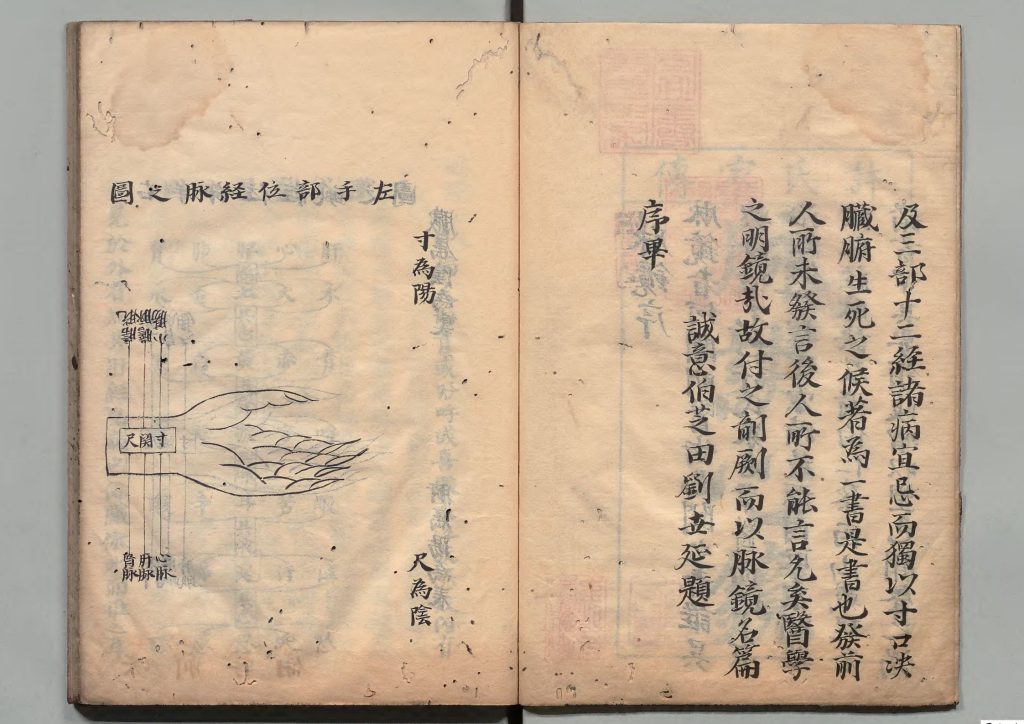 及三部十二経諸病宜忌而獨以寸口决
臓腑生死之候著為一書是書也發前
人所未發言後人所不能言允矣醫學
之明鏡㢤故付之剞劂而以脉鏡名篇
序畢
誠意伯芝田劉世延題
左手部位経脉之圖
寸為陽
尺為陰
小腸
膽
寸関尺
心脉
肝脉
腎脉